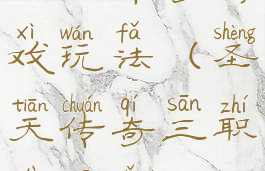 xì wán fǎ shèng
戏玩法(圣
tiān chuán qí sān zhí
天传奇三职